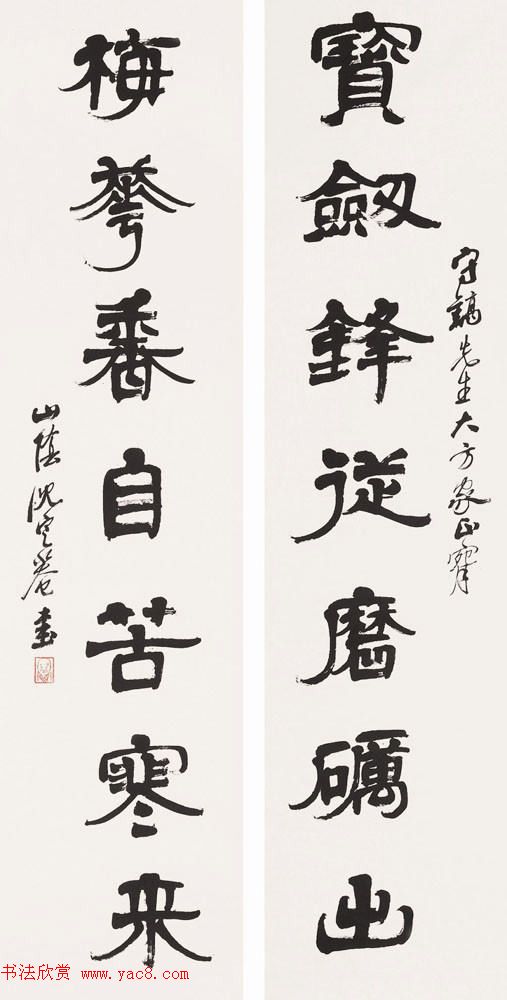 寶劔鋒從磨礪出
守鎬先生大方家正
梅華香自苦寒來
山陰沈定菴書
书法欣赏 www.yac8.com